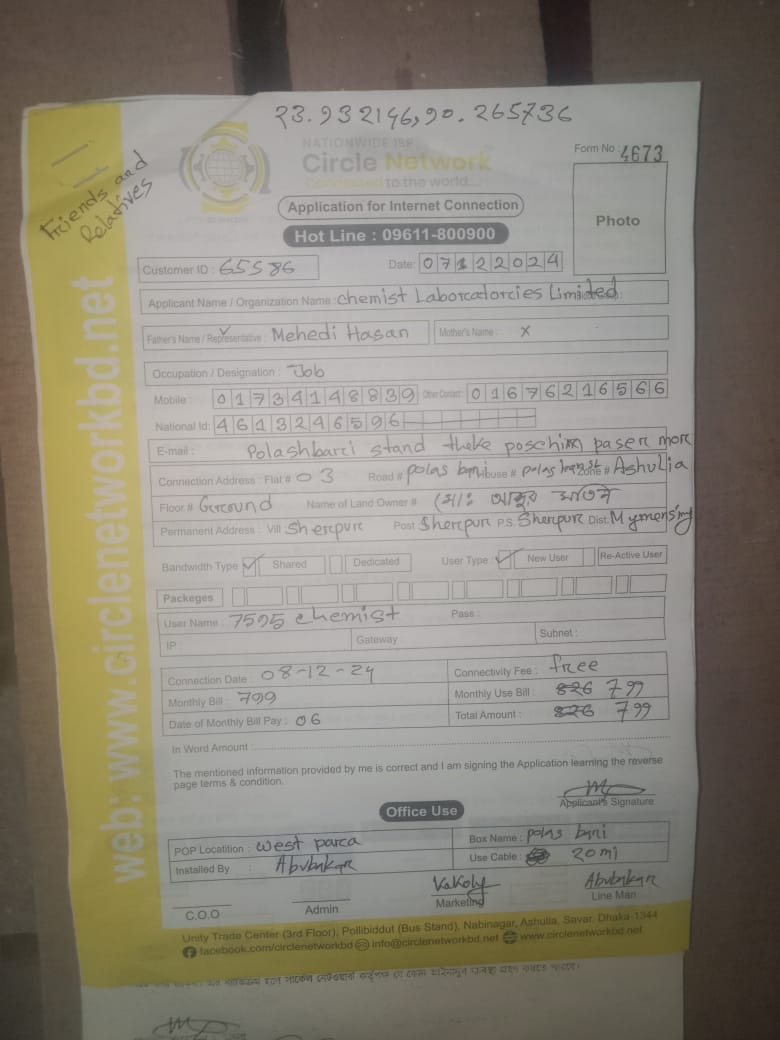 23.932146,90.265736
NATIONWIDE ISP
Circle Network
Connected to the world...
Form No : 4673
Friends and
Relatives
Application for Internet Connection
Photo
Hot Line : 09611-800900
Customer ID : 65586 Date: 07122024
Applicant Name / Organization Name : Chemist Laborcatorcies Limited
Father's Name / Representative : Mehedi Hasan Mother's Name : x
Occupation / Designation : Job
Mobile : 01734148839 Other Contact : 01676216566
National Id: 4613246596
E-mail : Polashbarci stand theke poschim paser more
Connection Address : Flat # 03 Road # polas bari House # polas Zone # Ashulia
Floor # Grcound Name of Land Owner # (মোঃ
Permanent Address : Vill Shercpurc Post Shercpurc P.S. Shercpurc Dist: Mymensing
Bandwidth Type Shared Dedicated User Type : New User Re-Active User
Packeges
User Name : 7595 chemist Pass :
IP : Gateway Subnet :
Connection Date : 08-12-24 Connectivity Fee : free
Monthly Bill : 799 Monthly Use Bill : 826 799
Date of Monthly Bill Pay : 06 Total Amount : 826 799
In Word Amount :
The mentioned information provided by me is correct and I am signing the Application learning the reverse
page terms & condition.
Applicant's Signature
Office Use
POP Locatition : west parca Box Name : polas bari
Installed By : Abubakar Use Cable : 20 mi
Kakoly Abubakar
C.O.O Admin Marketing Line Man
Unity Trade Center (3rd Floor), Pollibiddut (Bus Stand), Nabinagar, Ashulia, Savar, Dhaka-1344
facebook.com/circlenetworkbd info@circlenetworkbd.net www.circlenetworkbd.net
web: www.circlenetworkbd.net